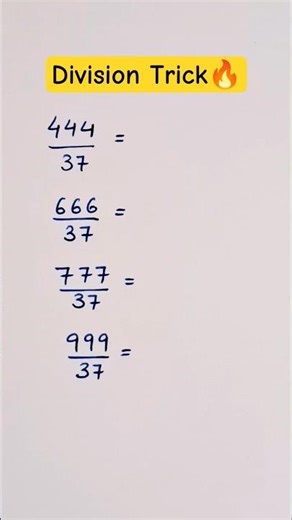 Division Trick🔥
444/37 =
666/37 =
777/37 =
999/37 =